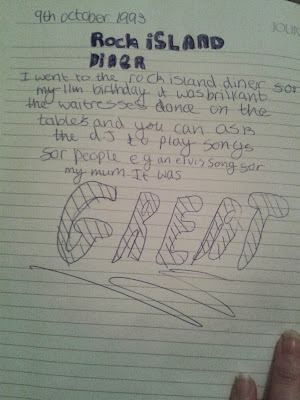 9th october 1993
JOUR
Rock iSLAND
DiNER
I went to the rock island diner for
my 11th birthday it was brilliant
the waitresses dance on the
tables and you can ask
the dJ to play songs
for people e.g an elvis song for
my mum. It was
GREAT